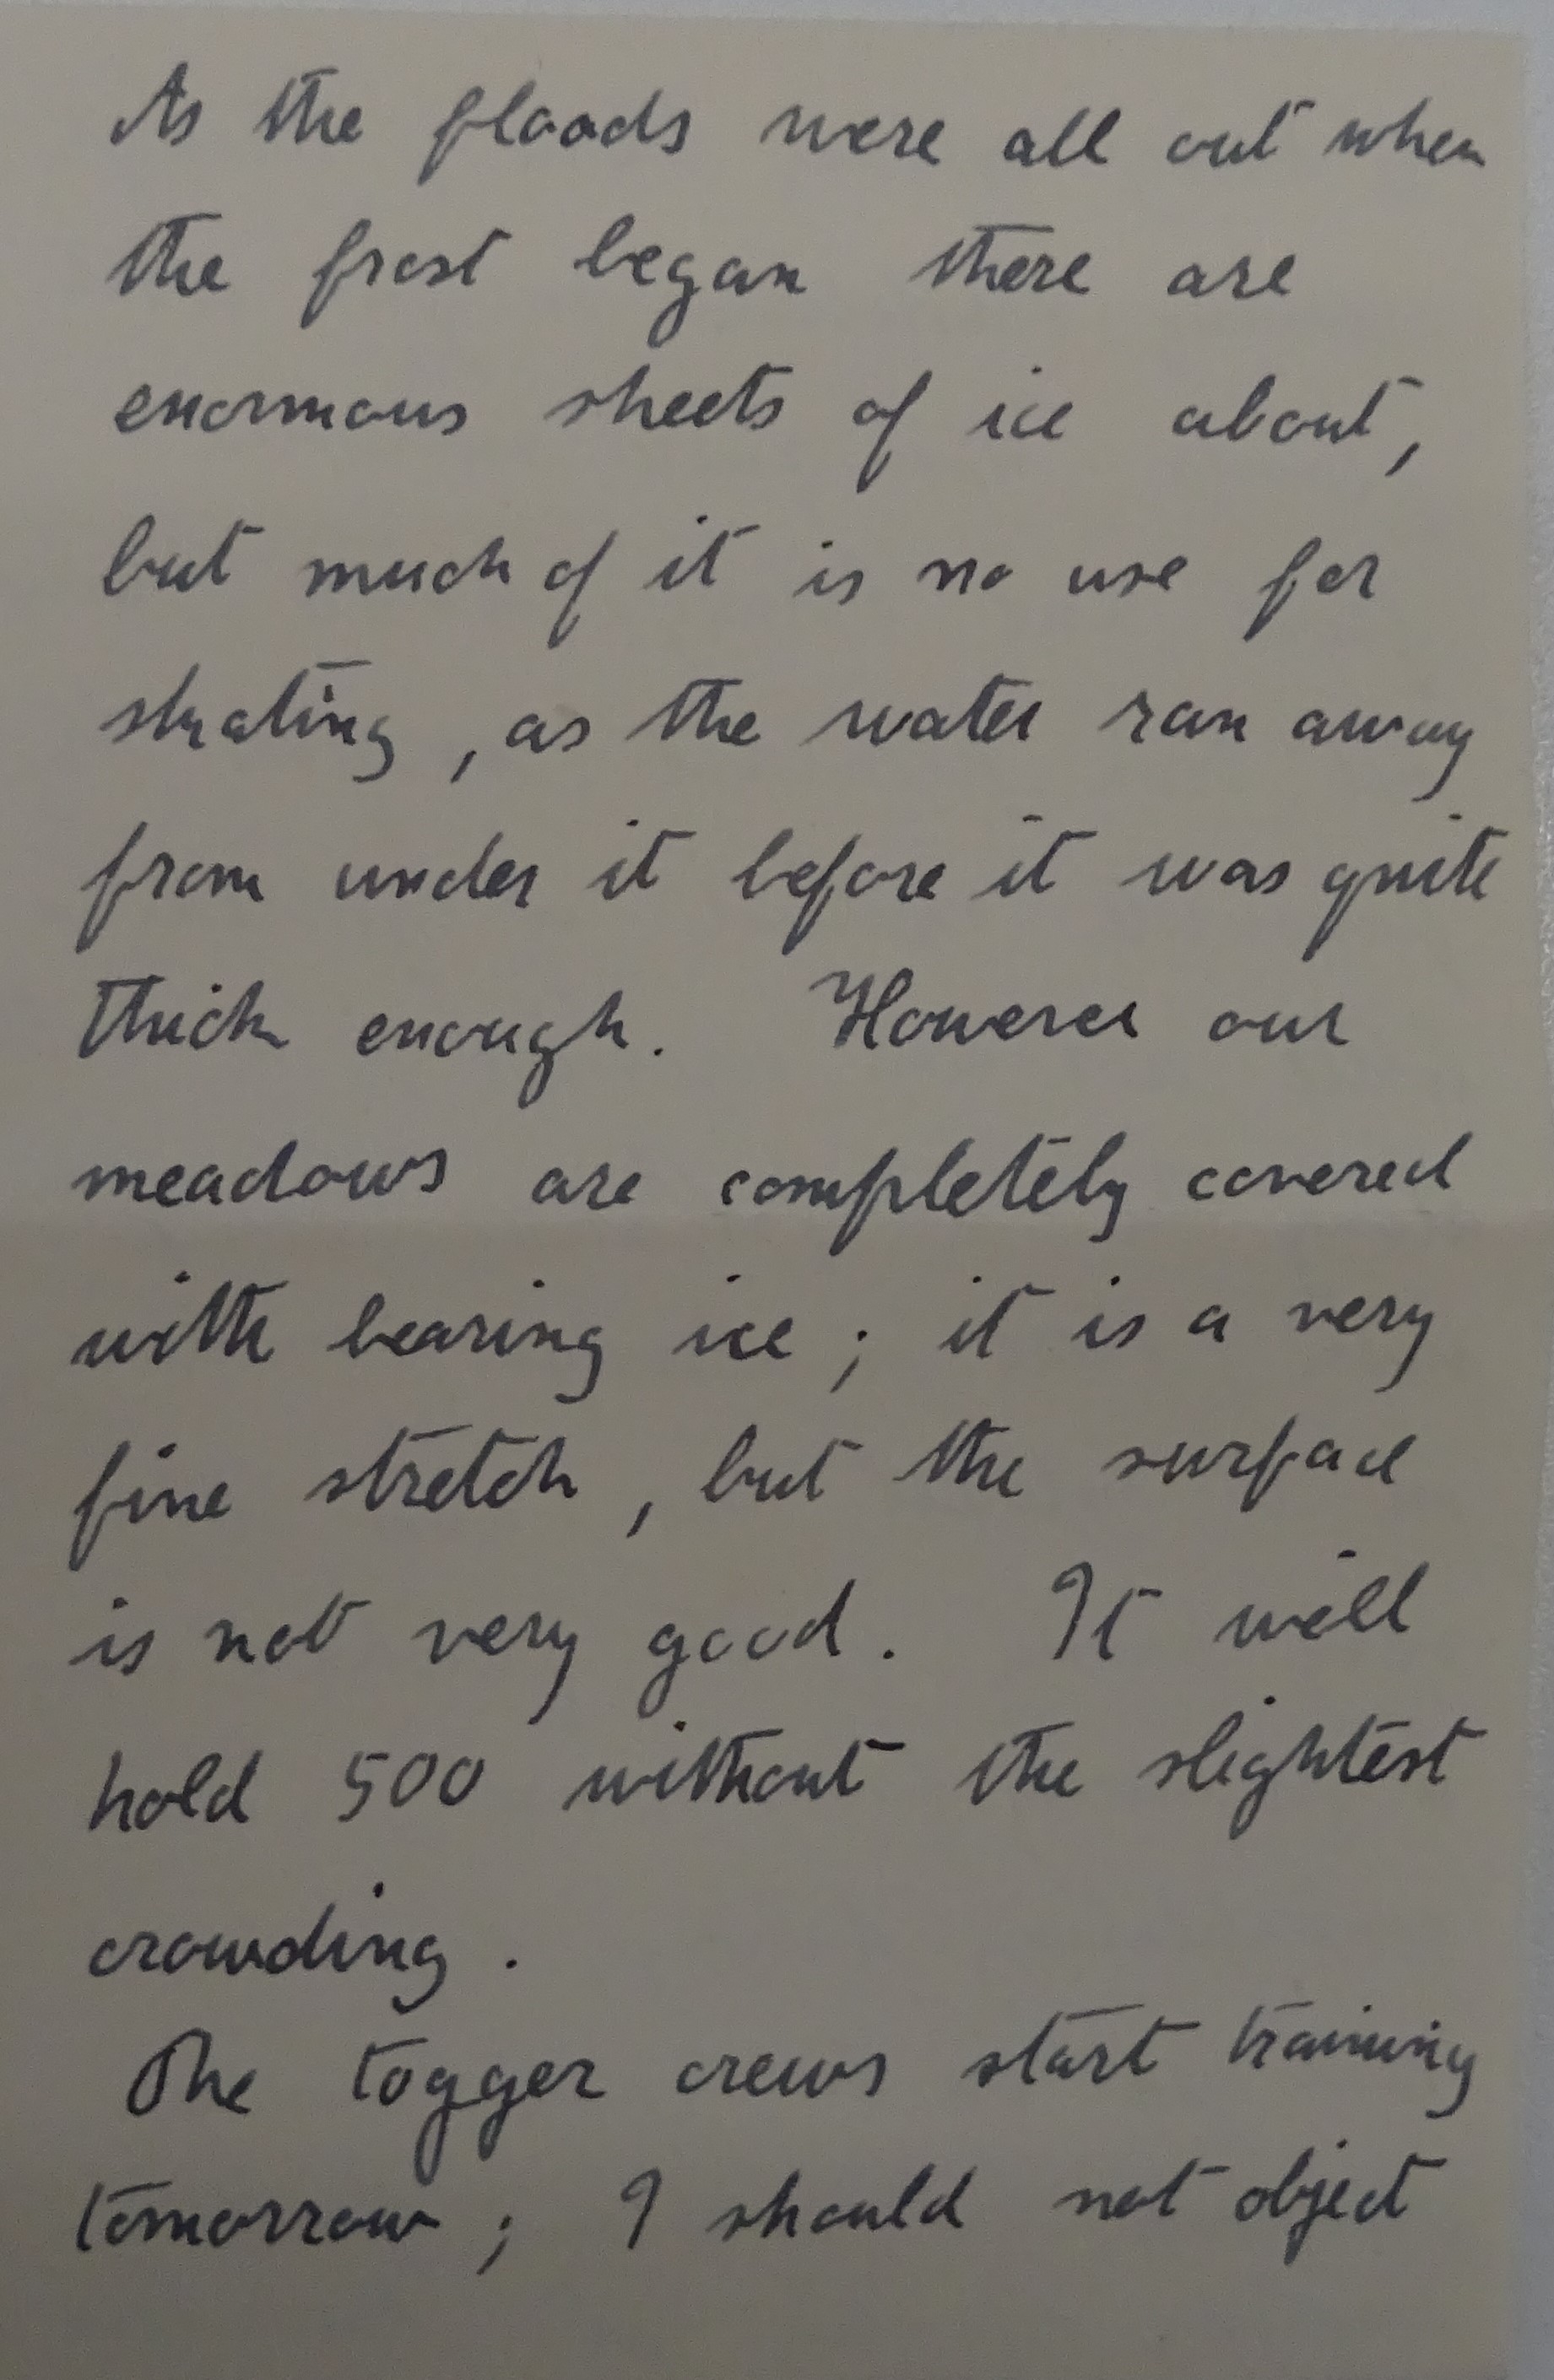 As the floods were all out when
the frost began there are
enormous sheets of ice about,
but much of it is no use for
skating, as the water ran away
from under it before it was quite
thick enough. However our
meadows are completely covered
with bearing ice; it is a very
fine stretch, but the surface
is not very good. It will
hold 500 without the slightest
crowding.
The togger crews start training
tomorrow; I should not object